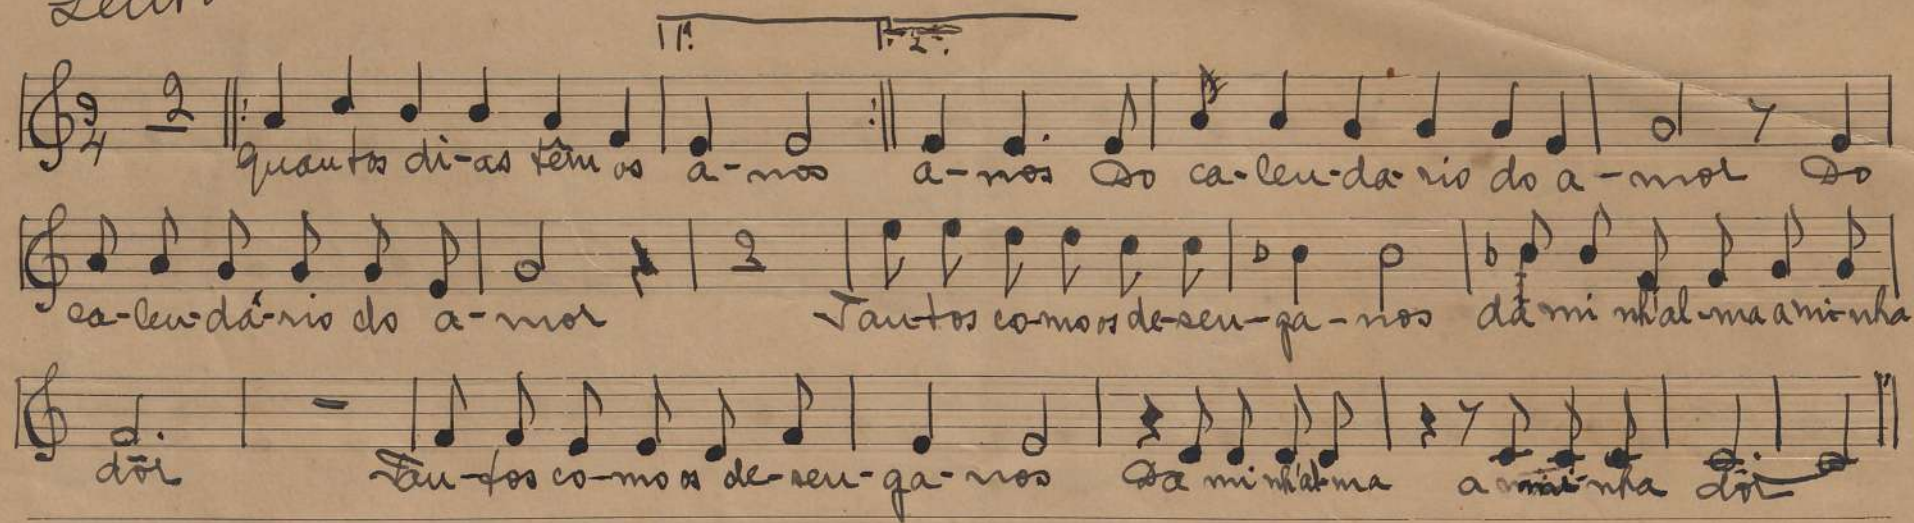 1ª. 2ª.
3 4 2
quantos di-as têm os a-nos a-nos Do ca-len-da-rio do a-mor Do
ca-len-dá-rio do a-mor 2 Tan-tos co-mo os de-sen-ga-nos da mi nh'al-ma a mi-nha
dôr Tan-tos co-mo os de-sen-ga-nos Da mi nh'al-ma a mi-nha dôr